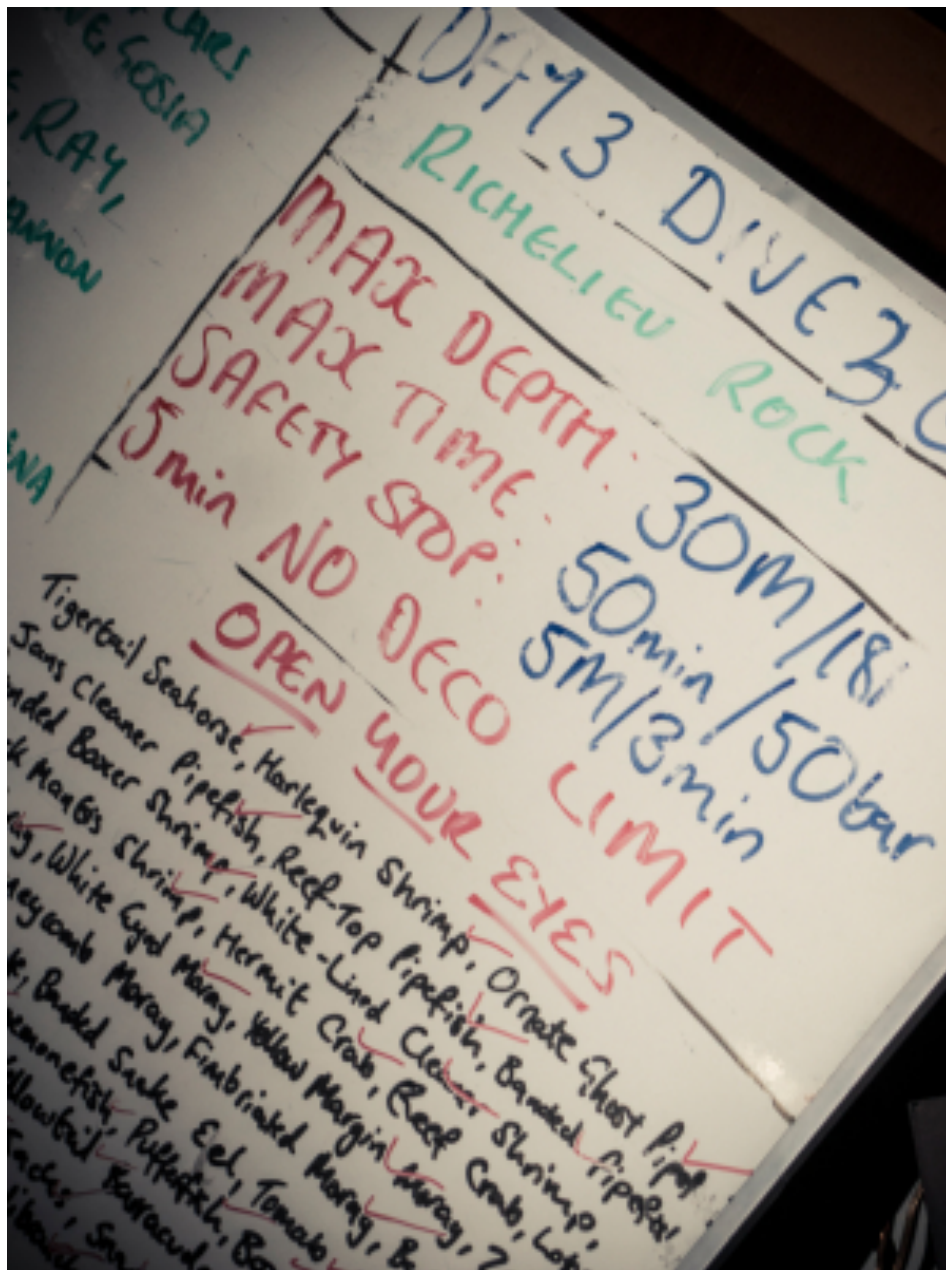 CAIRS
GOSIA
RAY,
ENA
DAY 3 DIVE
RICHELIEU ROCK
MAX DEPTH: 30M/18i
MAX TIME: 50min/50bar
SAFETY STOP: 5M/3min
5min NO DECO LIMIT
OPEN YOUR EYES
Tigertail Seahorse, Harlequin Shrimp, Ornate Ghost Pipef
Jans Cleaner Pipefish, Reef-Top Pipefish, Banded Pipefish
nded Boxer Shrimp, White-Lined Cleaner Shrimp,
k Mantis Shrimp, Hermit Crab, Reef Crab,
White Eyed Moray, Yellow Margin Moray,
neycomb Moray, Fimbriated Moray,
Banded Snake Eel, Tomato
nemonefish, Pufferfish, Box
llowtail Barracud